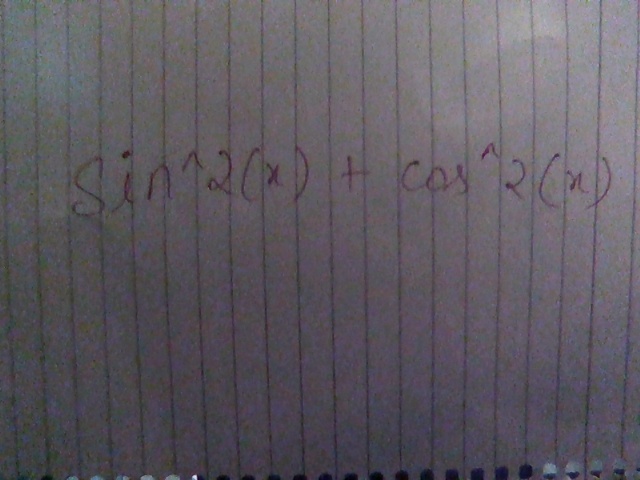 Sin^2(x) + cos^2(x)